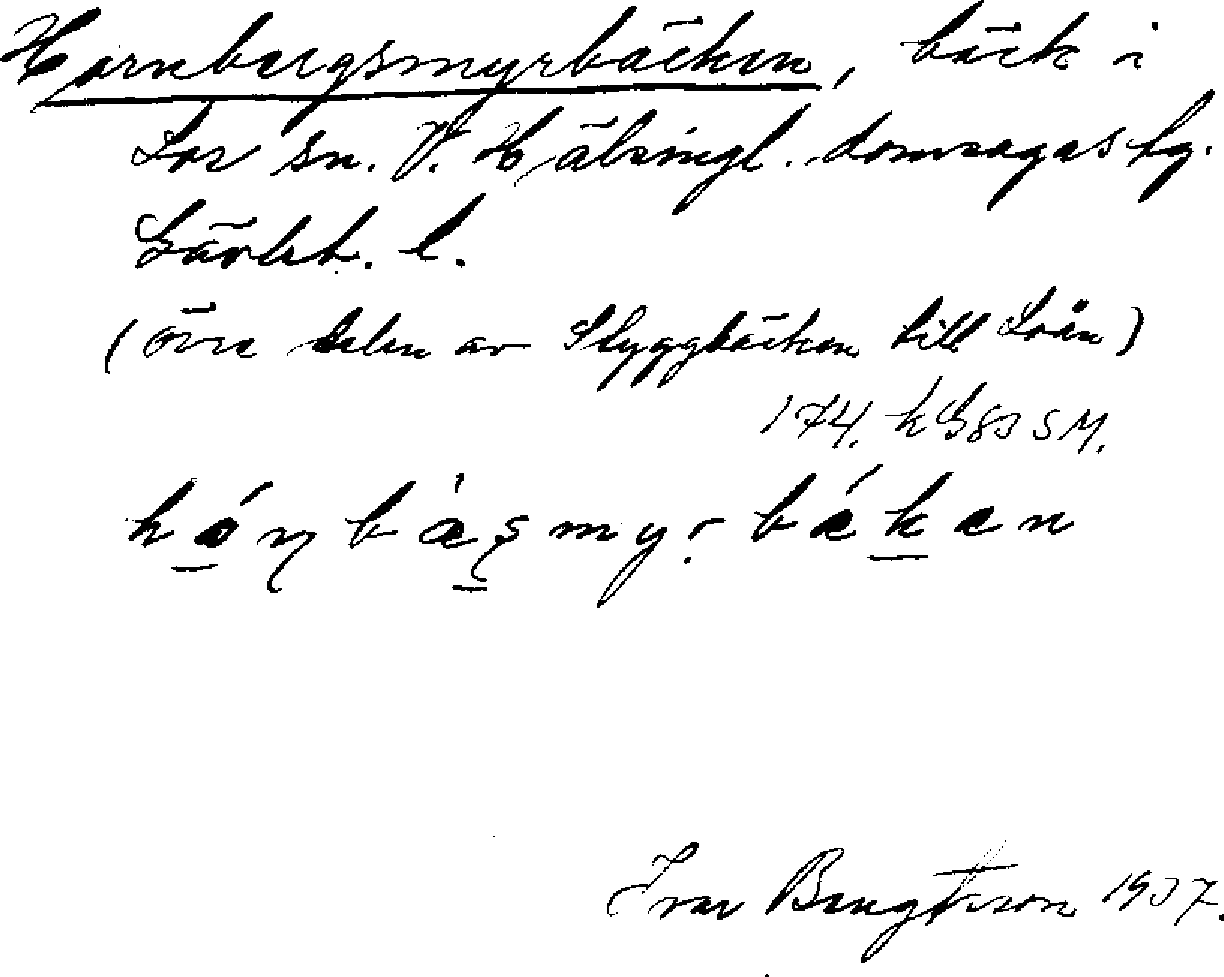 Hornbergsmyrbäcken, bäck i
Los sn. V. Hälsingl. domsagas tg.
Gävleb. l.
(övre delen av Styggbäcken till Loån)
174. k G83 SM.
hóṇbæ̀ṣmyr bǽkæn
Ivar Bengtsson 1937.